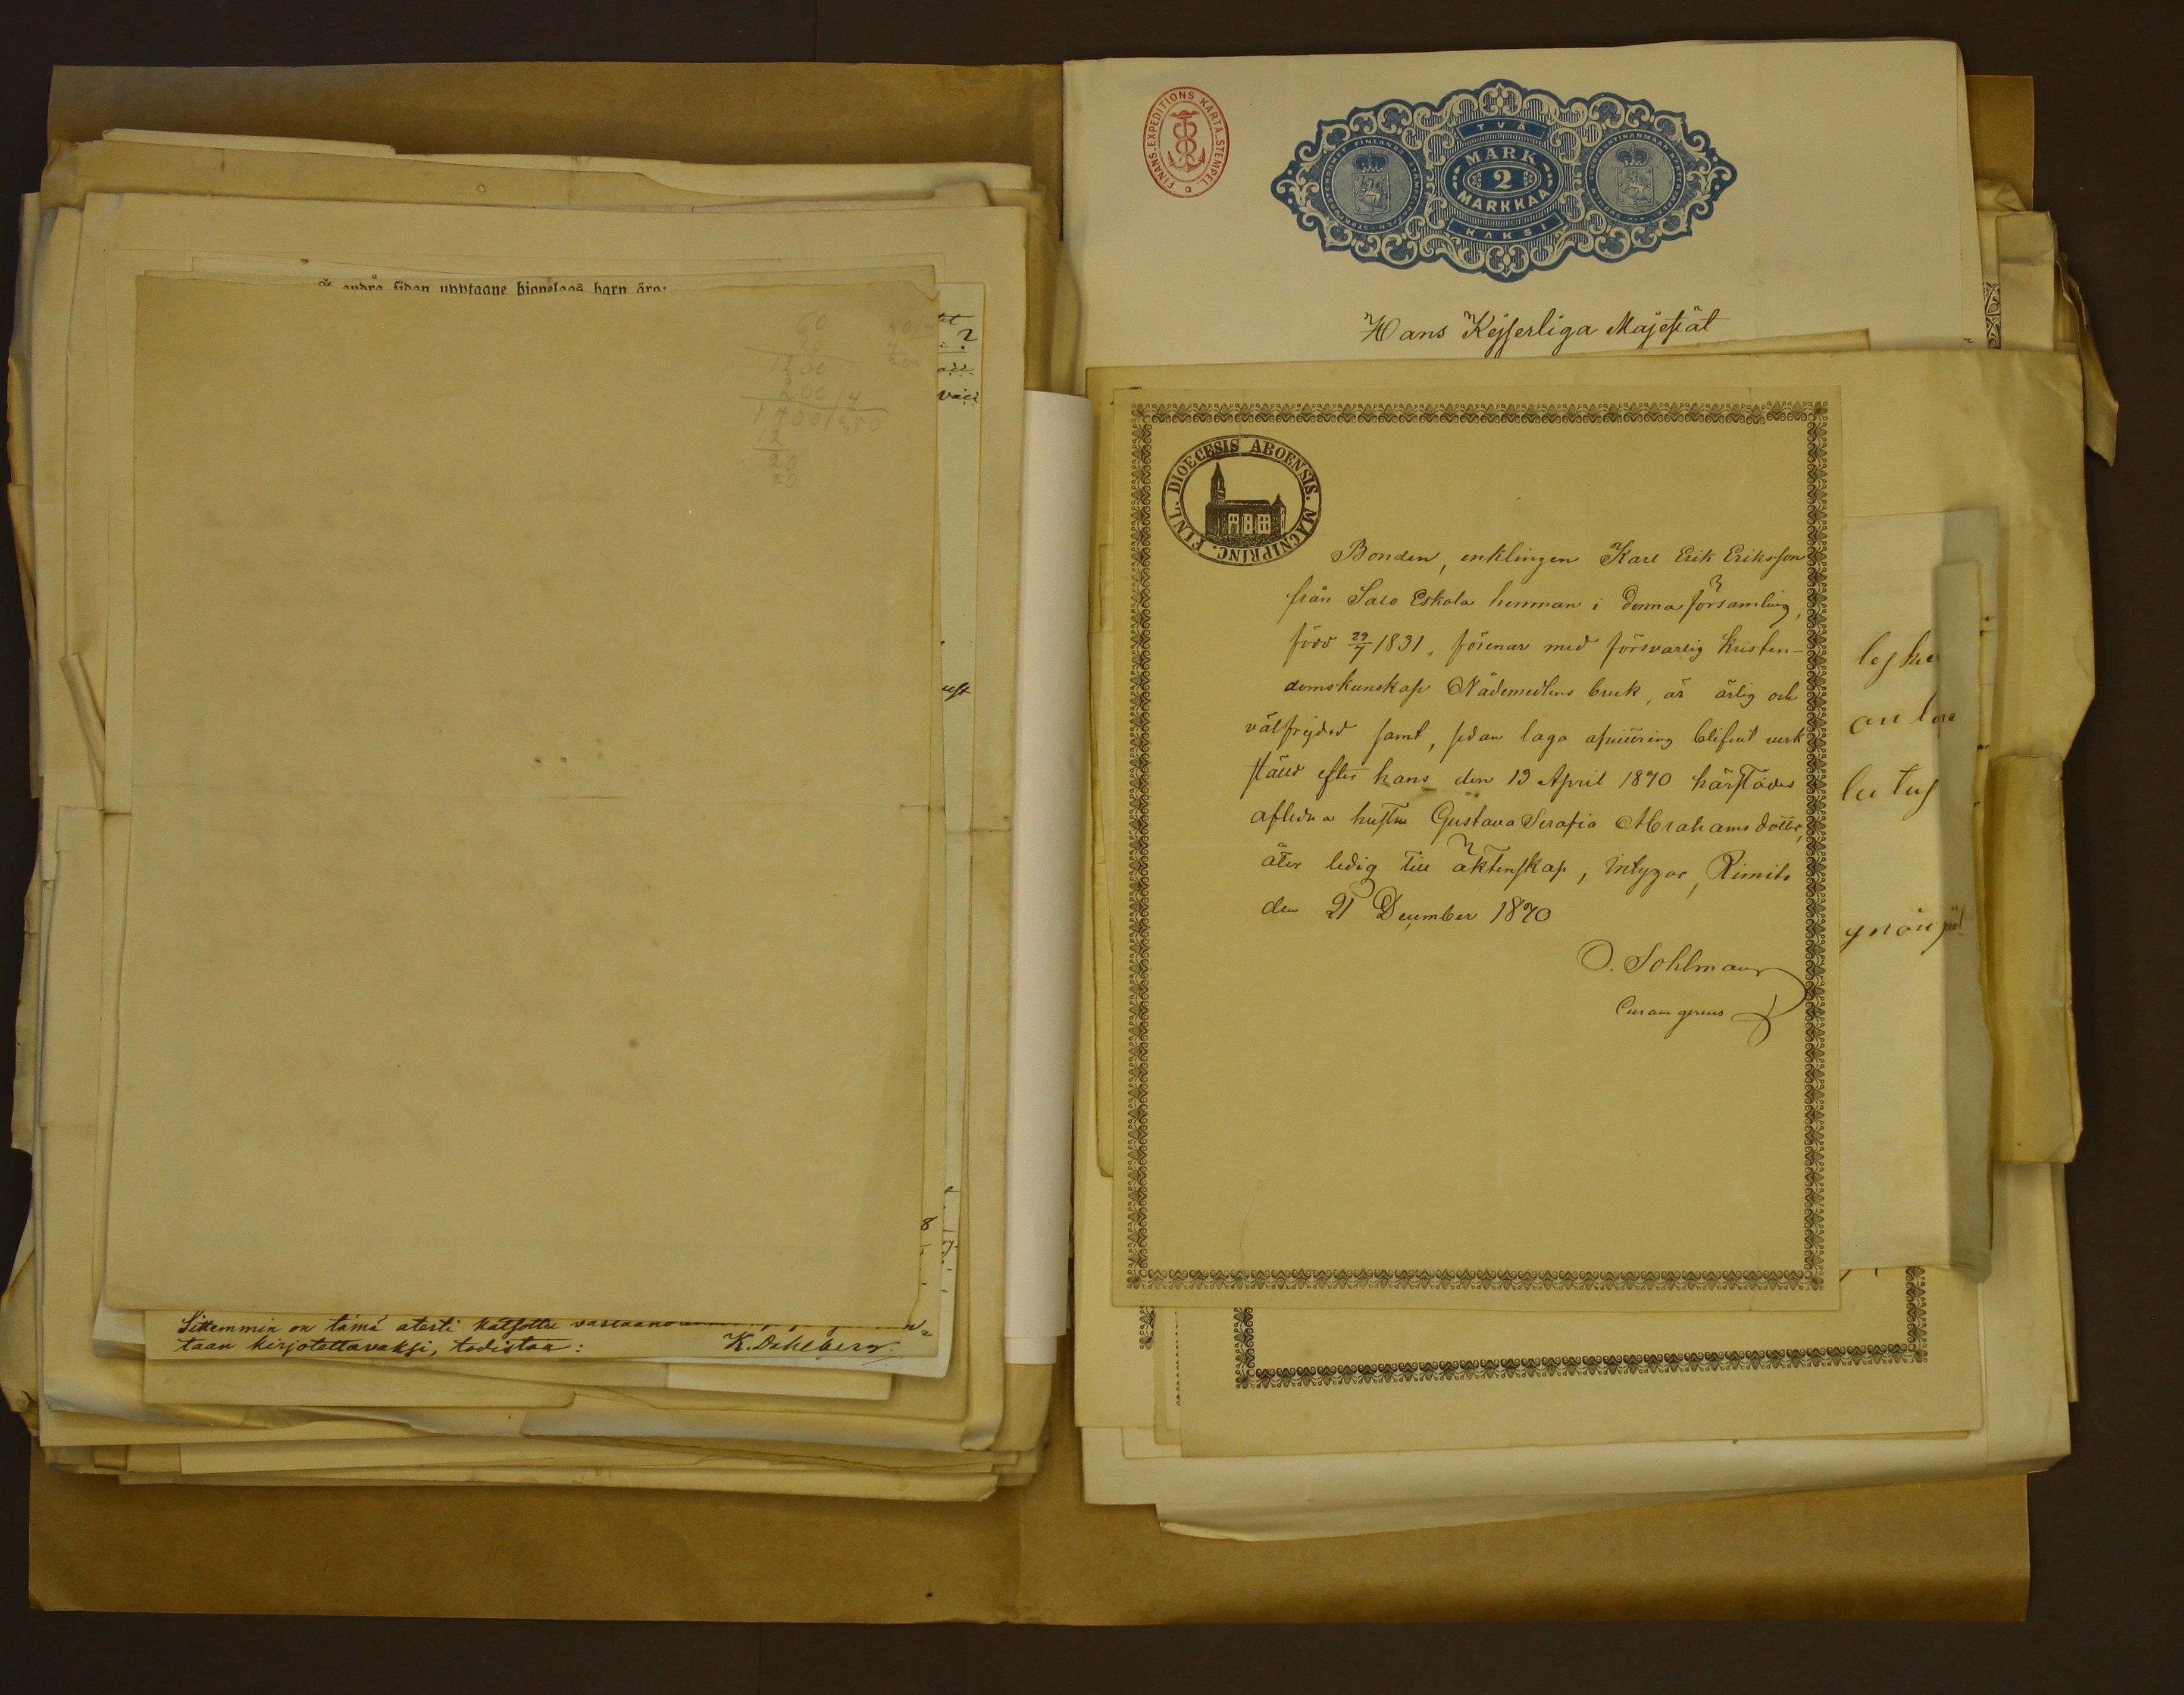 å andra sidan upptagne hionelags barn äro:
60
20
1200
200/4
1400/350
12
20
20
Sittemmin on tämä atesti katsottu
taan kirjotettavaksi, todistaa: K. Dahlberg.
FINANS-EXPEDITIONS KARTA-STEMPEL.
TVÅ
MARK
2
MARKKAA
KAKSI
Hans Kejserliga Majestät
DIOECESIS ABOENSIS. MAGNIPRINC. FINL.
Bonden, enklingen Karl Erik Eriksson
från Salo Eskola hemman i denna församling,
född 29/7 1831, förenar med försvarlig kristen-
domskunskap Nådemedlens bruk, är ärlig och
välfrejdad samt, sedan laga afvittring blifvit verk
ställd efter hans den 13 April 1870 härstädes
aflidna hustru Gustava Serafia Abrahamsdotter,
åter ledig till äktenskap; intygar, Rimito
den 21 December 1870
O. Sohlman
Curam gerens